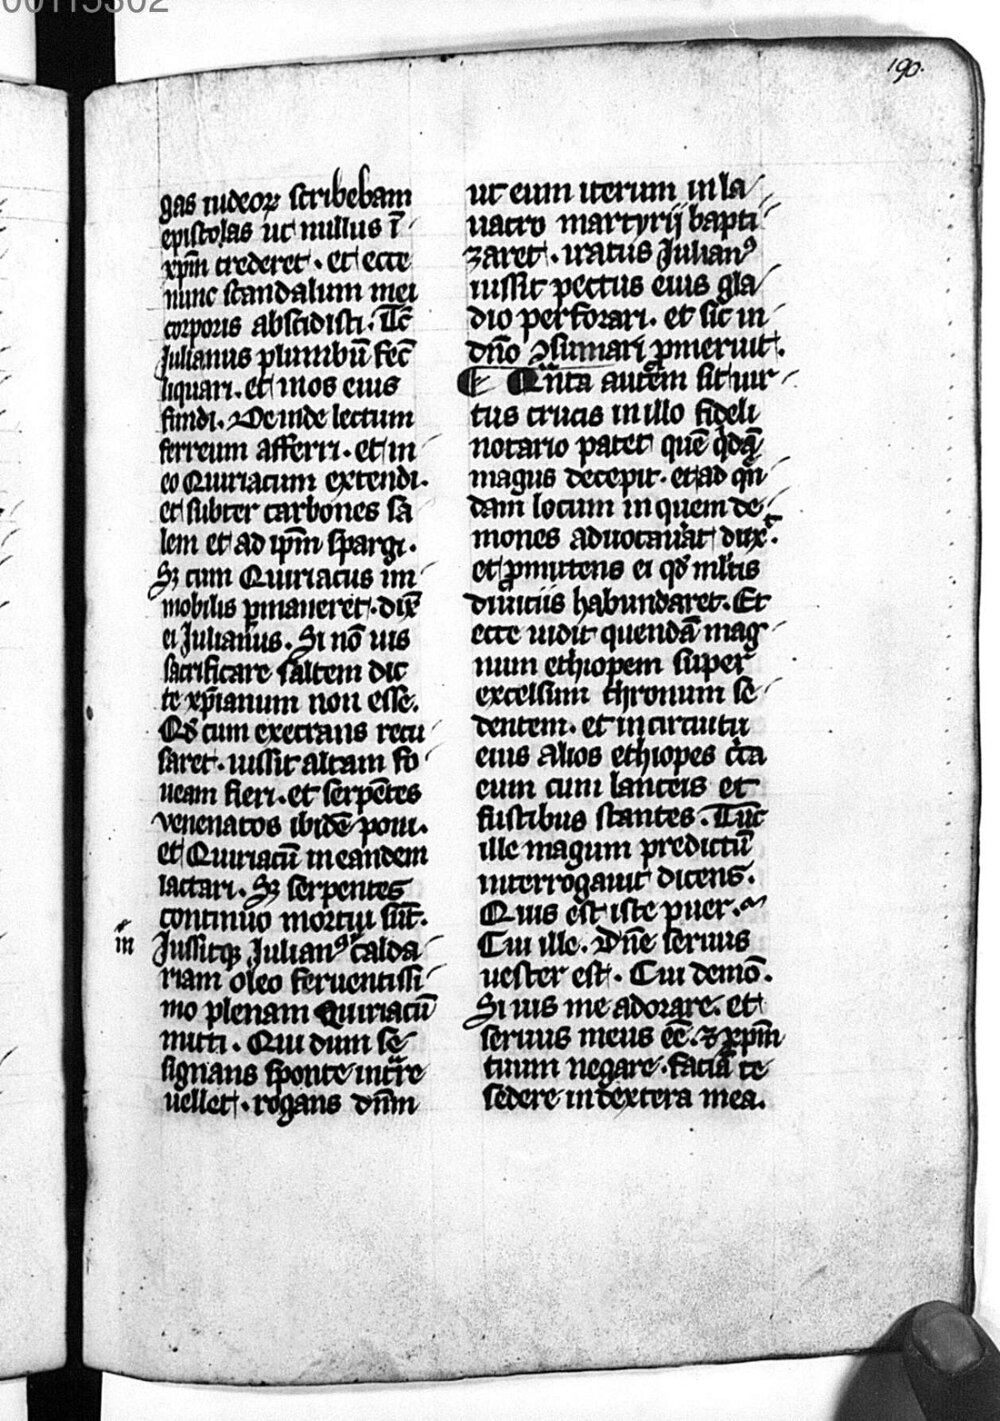 00115302
190.
gas iudeoꝝ scribebam
epistolas ut nullus ī
xp̄m crederet. et ecce
nunc scandalum mei
corporis abscidisti. Tc̄
Julianus plumbū fec̄
liquari. et in os eius
fundi. Deinde lectum
ferreum afferri. et in
eo Quiriacum extendi.
et subter carbones sa
lem et adip̄m spargi.
Sꝫ cum Quiriacus im
mobilis ꝑmaneret. dix̄
ei Julianus. Si nō uis
sacrificare saltem dic
te xp̄ianum non esse.
Qd̄ cum execrans recu
saret. iussit altam fo
ueam fieri. et serpētes
venenatos ibidē poni.
et Quiriacū in eandem
iactari. Sꝫ serpentes
continuo mortui sūt.
in
Jussitqꝫ Julianꝰ calda
riam oleo feruentissi
mo plenam Quiriacū
mitti. Qui dum se
signans sponte int̄re
vellet. rogans dn̄m
ut eum iterum in la
uacro martyrij bapti
zaret. iratus Julianꝰ
iussit pectus eius gla
dio perforari. et sic in
dn̄o ꝯsumari ꝓmeruit.
Qn̄ta autem sit uir
tus crucis in illo fideli
notario patet quē qdā
magus decepit. et ad qn̄
dam locum in quem de
mones aduocauat dux̄.
et ꝓmittens ei qd̄ ml̄tis
diuiciis habundaret. Et
ecce uidit quendā mag
num ethiopem super
excelsum thronum se
dentem. et in circuitu
eius alios ethiopes ct̄a
eum cum lanceis et
fustibus stantes. Tūc
ille magum predictū
interrogauit dicens.
Quis est iste puer.
Cui ille. Dn̄e seruus
uester est. Cui demō.
Si uis me adorare. et
seruus meus eē. ⁊ xp̄m
tuum negare. faciā te
sedere in dextera mea.